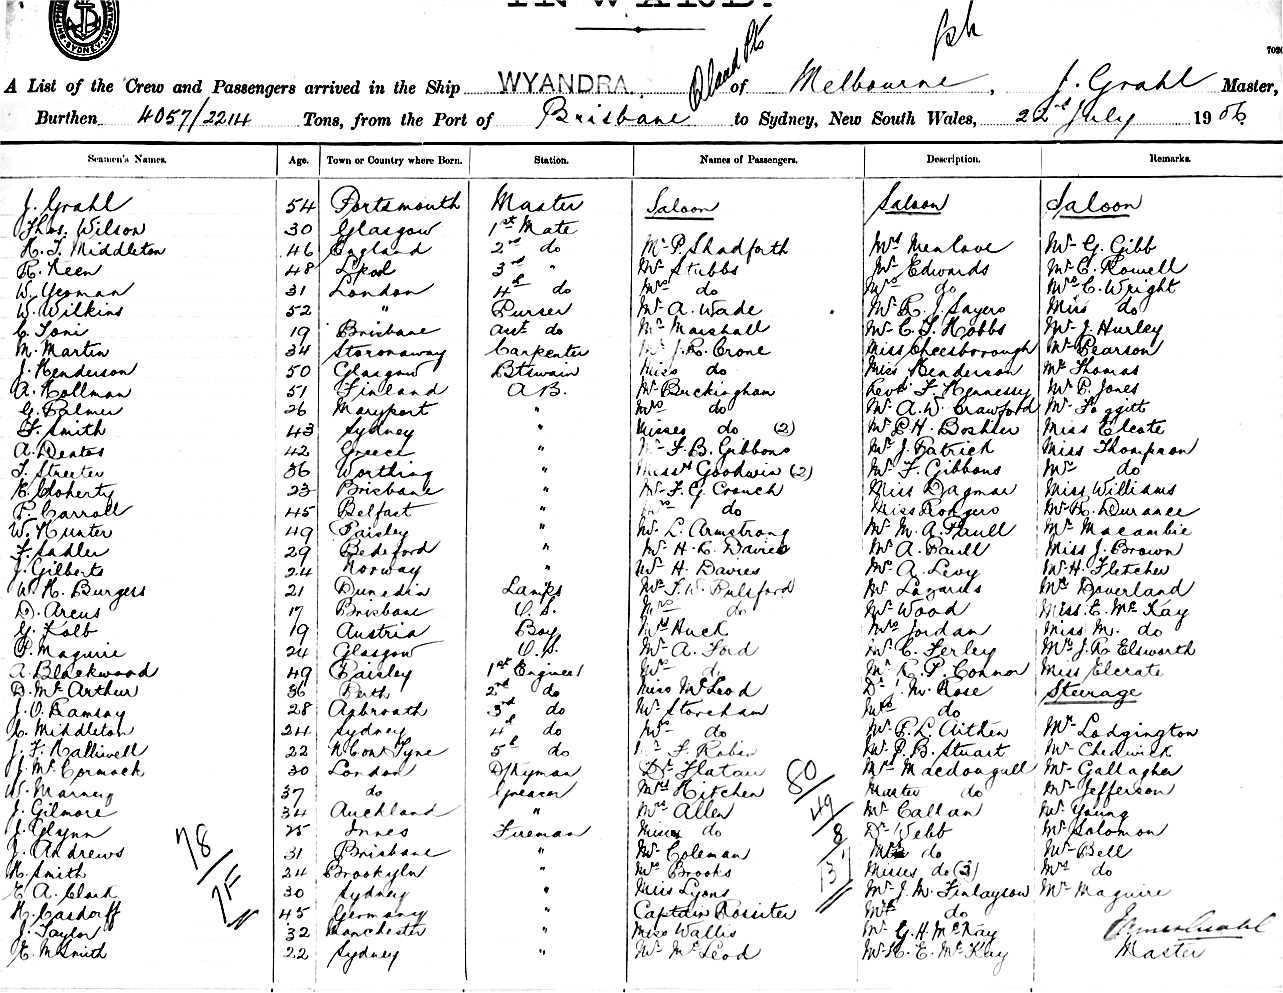 INWARD.
SYDNEY
A List of the Crew and Passengers arrived in the Ship WYANDRA of Melbourne, J. Grahl Master,
Burthen 4057/2214 Tons, from the Port of Brisbane to Sydney, New South Wales, 22nd July 1906
Seamen's Names. Age. Town or Country where Born. Station. Names of Passengers. Description. Remarks.
J. Grahl 54 Portsmouth Master Saloon Saloon Saloon
Thos. Wilson 30 Glasgow 1st Mate
H. T. Middleton 46 England 2nd do Mr P. Shadforth Mrs Menlove Mr G. Gibb
R. Keen 48 L'pool 3rd " Mr Stubbs Mr Edwards Mr C. Rowell
W. Yeoman 31 London 4th do Mrs do Mrs do Mrs C. Wright
W. Wilkins 52 " Purser Mr A. Wade Mr R. J. Sayers Miss do
C. Toni 19 Brisbane Asst do Mr Marshall Mr C. F. Hobbs Mr J. Hurley
M. Martin 34 Stornaway Carpenter Mr J. R. Crone Miss Cheesborough Mr Pearson
J. Henderson 50 Glasgow Btswain Miss do Miss Henderson Mr Thomas
A. Hollman 51 Finland A.B. Mr Buckingham Revd F. Hennessy Mr P. Jones
G. Palmer 26 Maryport " Mrs do Mr A. W. Crawford Mr Foggitt
F. Smith 43 Sydney " Misses do (2) Mr P. H. Boshier Miss Elcate
A. Deatos 42 Greece " Mr F. B. Gibbons Mr J. Patrick Miss Thompson
T. Streeter 36 Worthing " Misses Goodwin (2) Mr F. Gibbons Mr do
E. Cloherty 23 Brisbane " Mr F. G. Crouch Miss Dagmar Miss Williams
P. Carroll 45 Belfast " Mrs do Miss Rodgers Mr H. Durance
W. Hunter 49 Paisley " Mr L. Armstrong Mr M. A. Paull Mr Macambie
F. Sadler 29 Bedeford " Mr H. C. Davies Mr A. Paull Miss J. Brown
J. Gilberts 24 Norway " Mr H. Davies Mr A. Levy Mr H. Fletcher
W. H. Burgess 21 Dunedin Lamps Mr F. W. Pulsford Mr Lazarus Mrs Doverland
D. Arcus 17 Brisbane O.S. Mrs do Mr Wood Miss E. McKay
G. Kolb 19 Austria Boy Mrs Huck Mrs Jordan Miss M. do
P. Maguire 24 Glasgow O.S. Mr A. Ford Mr C. Ferley Mrs J. R. Elsworth
A. Blackwood 49 Paisley 1st Engineer Mrs do Mr R. P. Connor Miss Elcrate
D. McArthur 36 Perth 2nd do Miss McLeod Dr J. W. Rose Steerage
J. O. Ramsay 28 Arbroath 3rd do Mr Storeham Mrs do
C. Middleton 24 Sydney 4th do Mrs do Mr P. L. Aitken Mr Lodgington
J. F. Halliwell 22 N Con Tyne 5th do F. Rabin Mr P. B. Stuart Mr Chedwick
J. McCormack 30 London D/kyman Dr Flatau Mrs Macdougall Mr Gallagher
W. Marney 37 do Greaser Mrs Kitchen Master do Mr Jefferson
J. Gilmore 34 Auckland " Mrs Allen Mr Callan Mr Young
J. Glynn 25 Innes Fireman Misses do Dr Webb Mr Salomon
J. Andrews 31 Brisbane " Mr Coleman Mrs do Mr Bell
H. Smith 24 Brooklyn " Mrs Brooks Misses do (3) Mrs do
E. A. Clark 30 Sydney " Miss Lyons Mr J. M. Finlayson Mr Maguire
H. Casdorff 45 Germany " Captain Rossiter Mrs do
J. Taylor 32 Manchester " Miss Wallis Mr G. H. McKay
E. M. Smith 22 Sydney " Mr McLeod Mr H. E. McKay Master
78
80
49
8